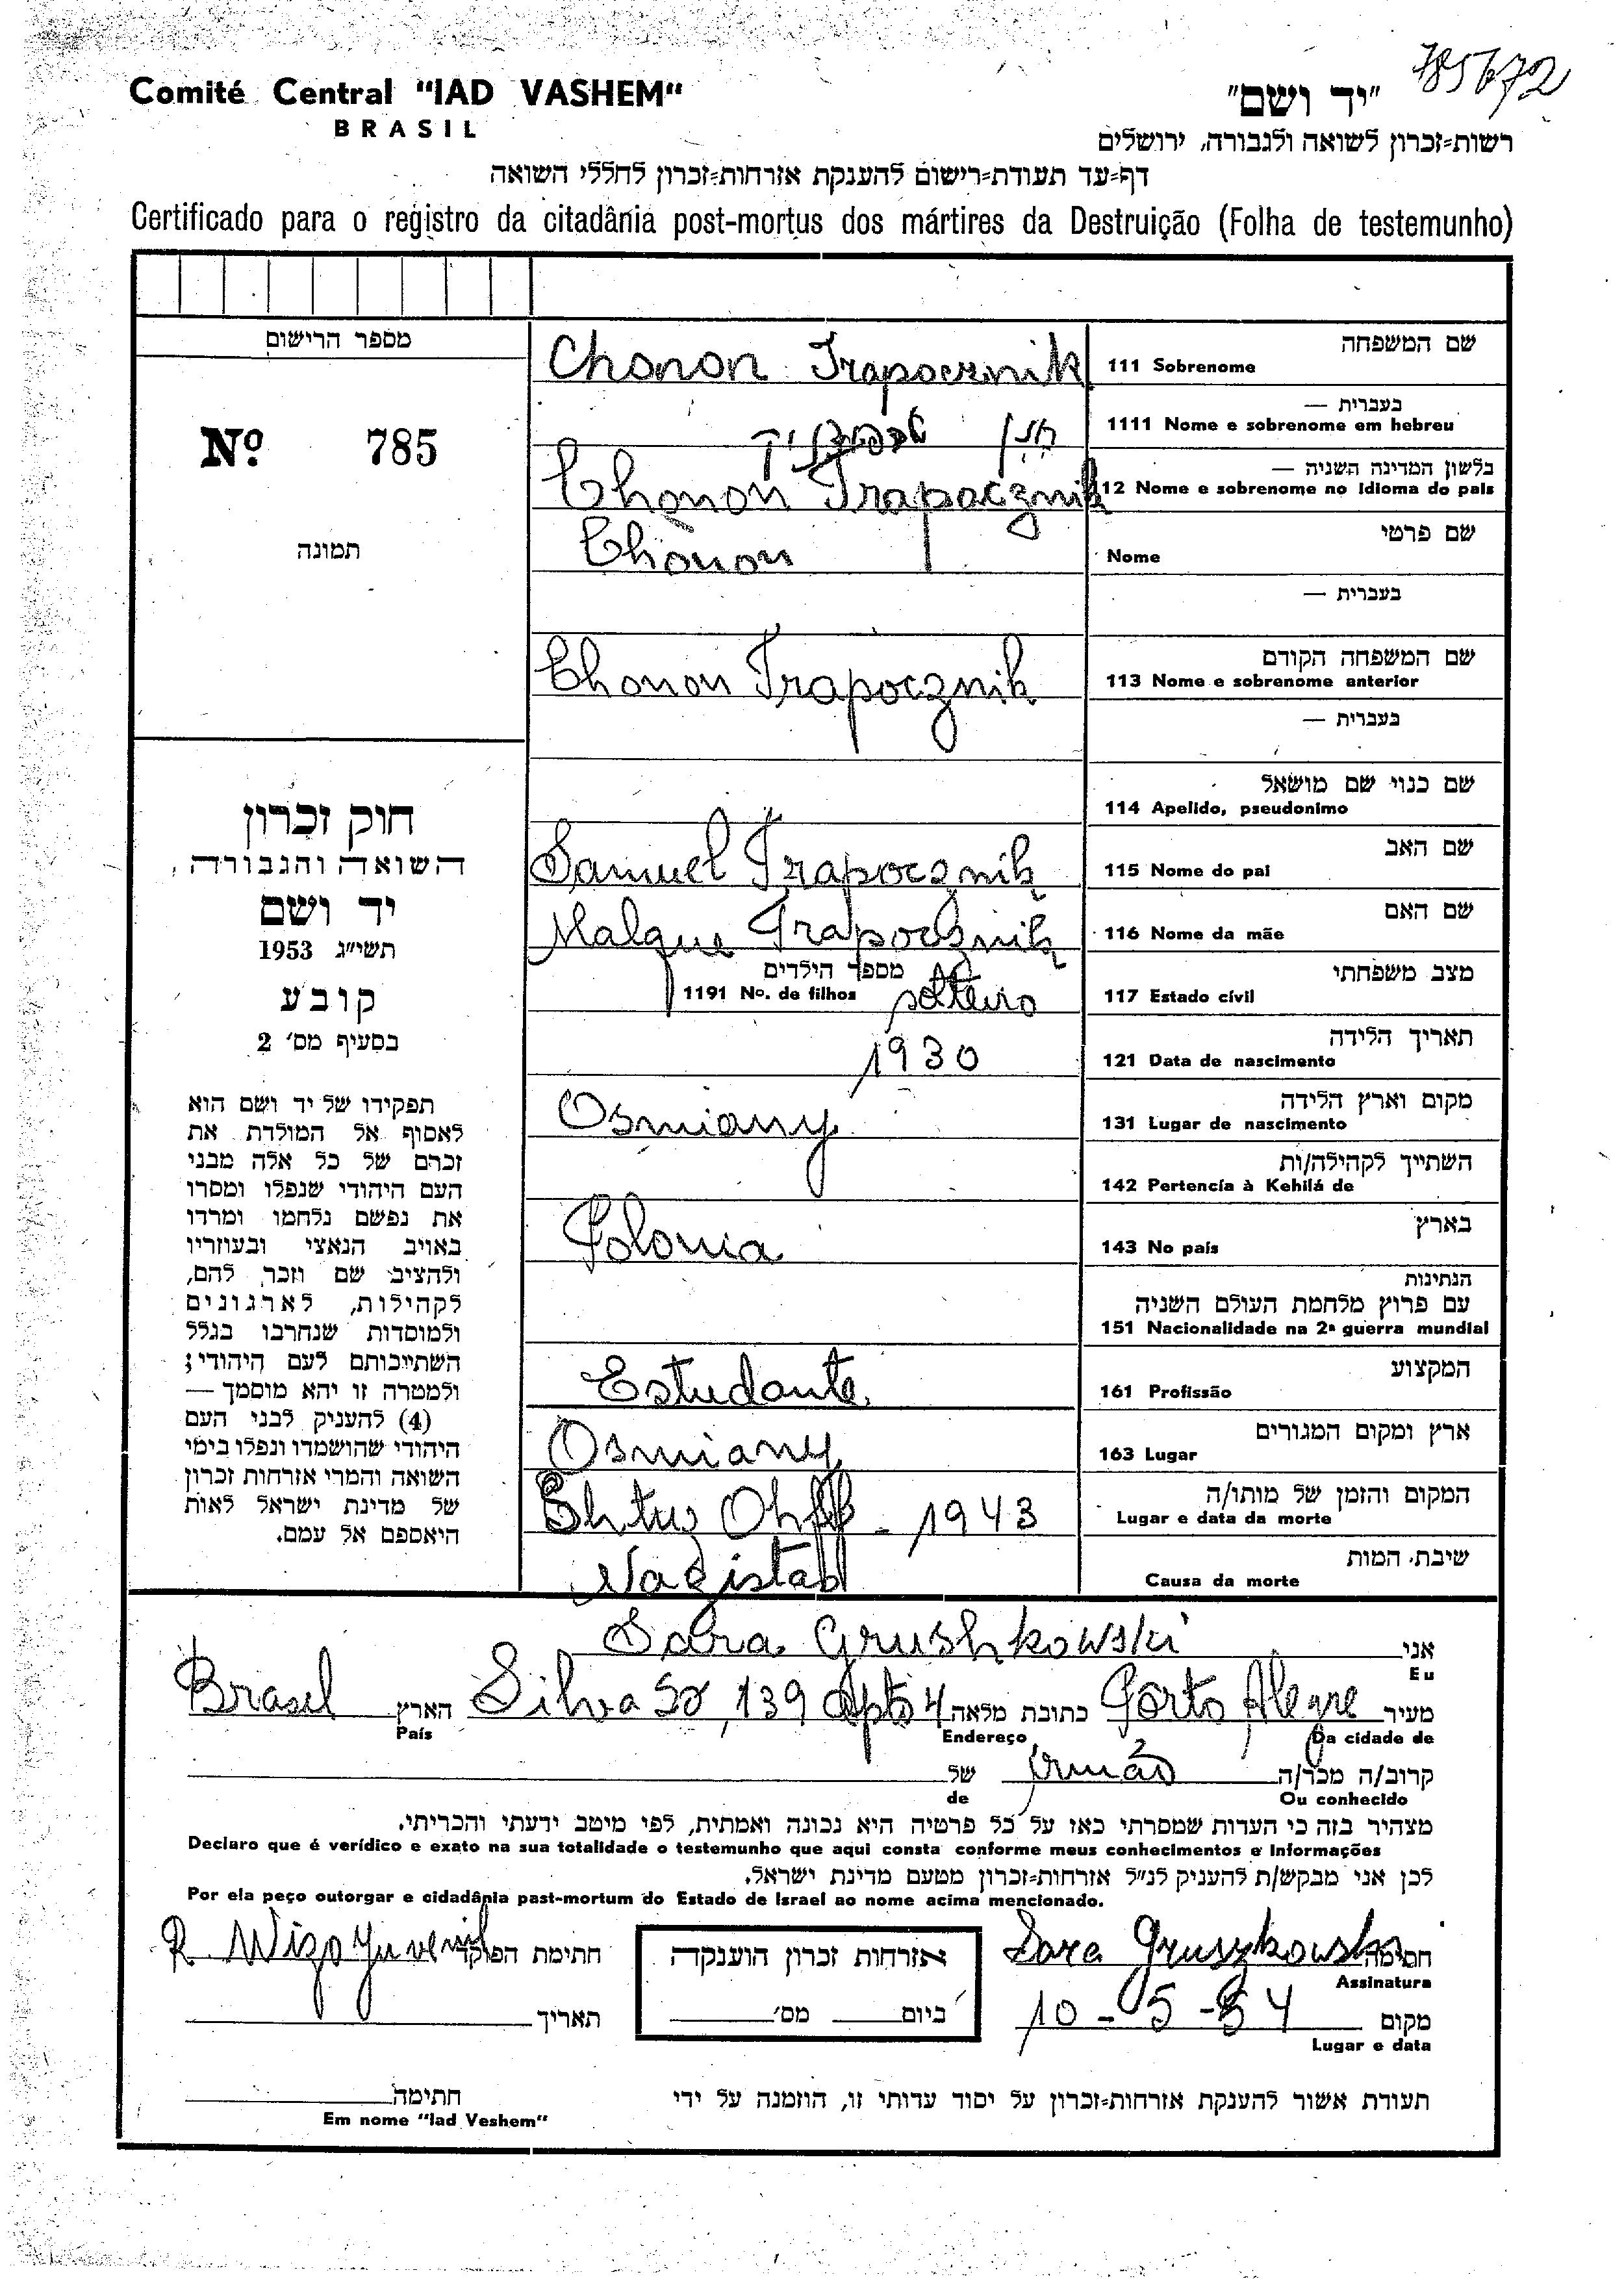 785672
Comité Central "IAD VASHEM"
BRASIL
"יד ושם"
רשות=זכרון לשואה ולגבורה, ירושלים
דף=עד תעודת=רישום להענקת אזרחות=זכרון לחללי השואה
Certificado para o registro da citadânia post-mortus dos mártires da Destruição (Folha de testemunho)
מספר הרישום
Nº 785
תמונה
שם המשפחה
111 Sobrenome
Chonon Trapocznik
בעברית —
1111 Nome e sobrenome em hebreu
חנן
בלשון המדינה השניה —
112 Nome e sobrenome no idioma do país
Chonon Trapocznik
שם פרטי
Nome
Chonon
בעברית —
שם המשפחה הקודם
113 Nome e sobrenome anterior
Chonon Trapocznik
בעברית —
שם כנוי שם מושאל
114 Apelido, pseudonimo
שם האב
115 Nome do pai
Samuel Trapocznik
שם האם
116 Nome da mãe
Malque Trapocznik
מצב משפחתי
117 Estado cívil
מספר הילדים
1191 Nº. de filhos
solteiro
תאריך הלידה
121 Data de nascimento
1930
מקום וארץ הלידה
131 Lugar de nascimento
Osmiany
השתייך לקהילה/ות
142 Pertencía à Kehilá de
בארץ
143 No país
Polonia
הנתינות
עם פרוץ מלחמת העולם השניה
151 Nacionalidade na 2ª guerra mundial
המקצוע
161 Profissão
Estudante
ארץ ומקום המגורים
163 Lugar
Osmiany
המקום והזמן של מותו/ה
Lugar e data da morte
- 1943
שיבת המות
Causa da morte
חוק זכרון
השואה והגבורה,
יד ושם
תשי"ג 1953
קובע
בסעיף מס' 2
תפקידו של יד ושם הוא
לאסוף אל המולדת את
זכרם של כל אלה מבני
העם היהודי שנפלו ומסרו
את נפשם נלחמו ומרדו
באויב הנאצי ובעוזריו
ולהציב שם וזכר להם,
לקהילות, לארגונים
ולמוסדות שנחרבו בגלל
השתייכותם לעם היהודי;
ולמטרה זו יהא מוסמך —
(4) להעניק לבני העם
היהודי שהושמדו ונפלו בימי
השואה והמרי אזרחות זכרון
של מדינת ישראל לאות
היאספם אל עמם.
אני Sara Grushkowski
Eu
מעיר Porto Alegre כתובת מלאה Silva Só, 139 Apto 4 הארץ Brasil
Da cidade de Endereço País
קרוב/ה מכר/ה irmão של
Ou conhecido de
מצהיר בזה כי העדות שמסרתי כאן על כל פרטיה היא נכונה ואמתית, לפי מיטב ידעתי והכריתי.
Declaro que é verídico e exato na sua totalidade o testemunho que aqui consta conforme meus conhecimentos e informações
לכן אני מבקש/ת להעניק לנ"ל אזרחות=זכרון מטעם מדינת ישראל.
Por ela peço outorgar e cidadânia past-mortum do Estado de Israel ao nome acima mencionado.
חתימה Sara Gruszkowska
Assinatura
אזרחות זכרון הוענקה
ביום מס'
חתימת הפוקד R Wizo Juvenil
מקום 10-5-54
Lugar e data
תאריך
תעודת אשור להענקת אזרחות=זכרון על יסוד עדותי זו, הוזמנה על ידי
חתימה
Em nome "Iad Veshem"